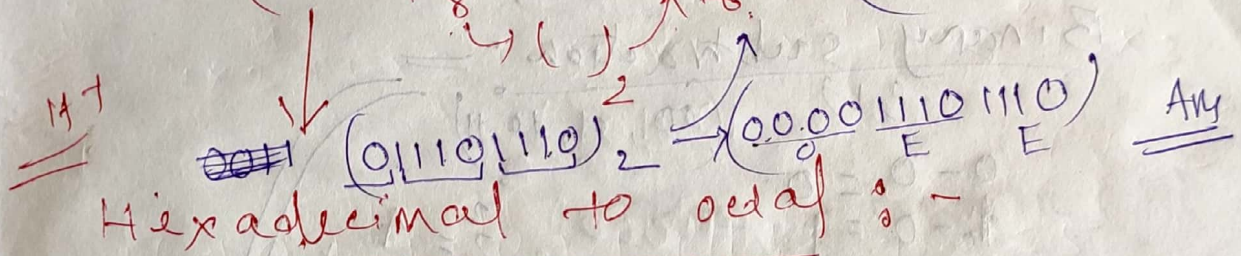 8 → ( )2
(011101110)2 → (000011101110) Ans
0 E E
Hexadecimal to octal :-